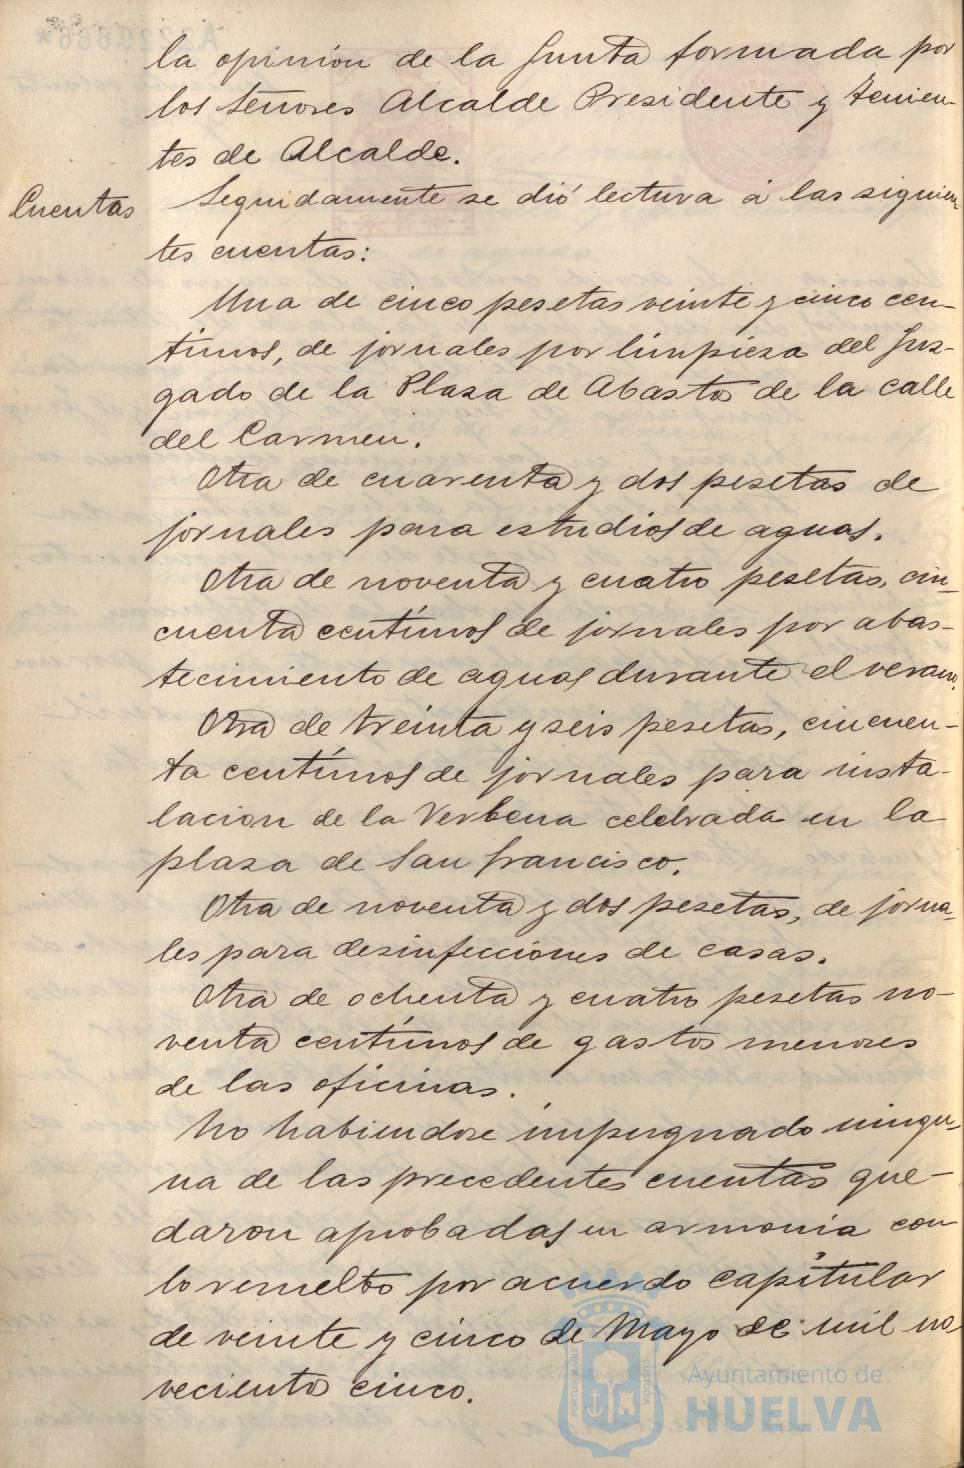 la opinión de la Junta formada por
los Señores Alcalde Presidente y tenien-
tes de Alcalde.
Cuentas
Seguidamente se dió lectura á las siguien-
tes cuentas:
Una de cinco pesetas veinte y cinco cen-
tímos, de jornales por limpieza del Juz-
gado de la Plaza de Abastos de la calle
del Carmen.
Otra de cuarenta y dos pesetas de
jornales para estudios de aguas.
Otra de noventa y cuatro pesetas, cin-
cuenta centímos de jornales por abas-
tecimiento de aguas durante el verano.
Otra de treinta y seis pesetas, cincuen-
ta centímos de jornales para insta-
lacion de la Verbena celebrada en la
plaza de San Francisco.
Otra de noventa y dos pesetas, de jorna-
les para desinfecciones de casas.
Otra de ochenta y cuatro pesetas no-
venta centímos de gastos menores
de las oficinas.
No habiendose impugnado ningu-
na de las precedentes cuentas que-
daron aprobadas en armonia con
lo resuelto por acuerdo capitular
de veinte y cinco de Mayo de mil no-
veciento cinco.
Ayuntamiento de
HUELVA